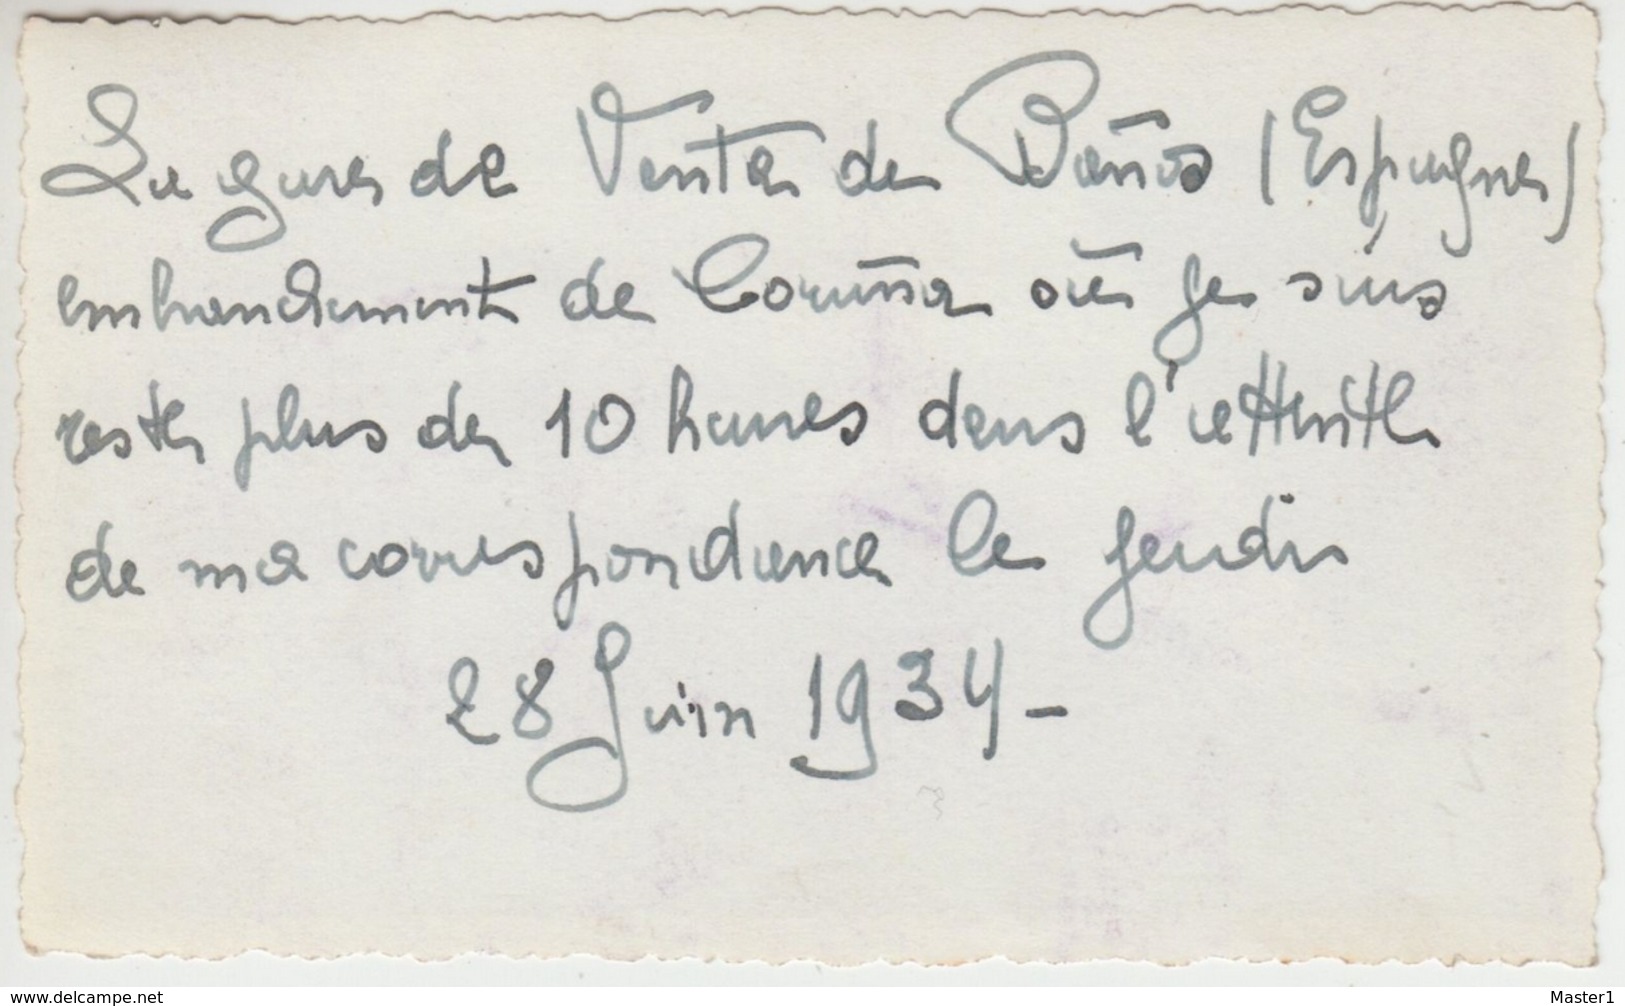 La gare de Venta de Baños (Espagne)
embranchement de Coruña où je suis
resté plus de 10 heures dans l'attente
de ma correspondance le jeudi
28 Juin 1934 -
www.delcampe.net
Master1